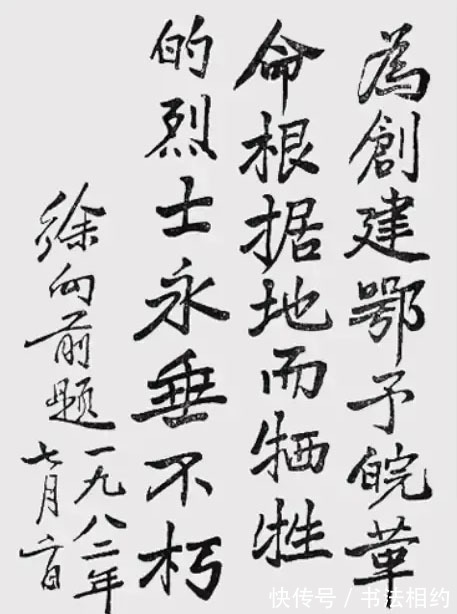 為創建鄂予皖革
命根据地而牺牲
的烈士永垂不朽
徐向前题
一九八二年
七月二日
快传号／书法相约